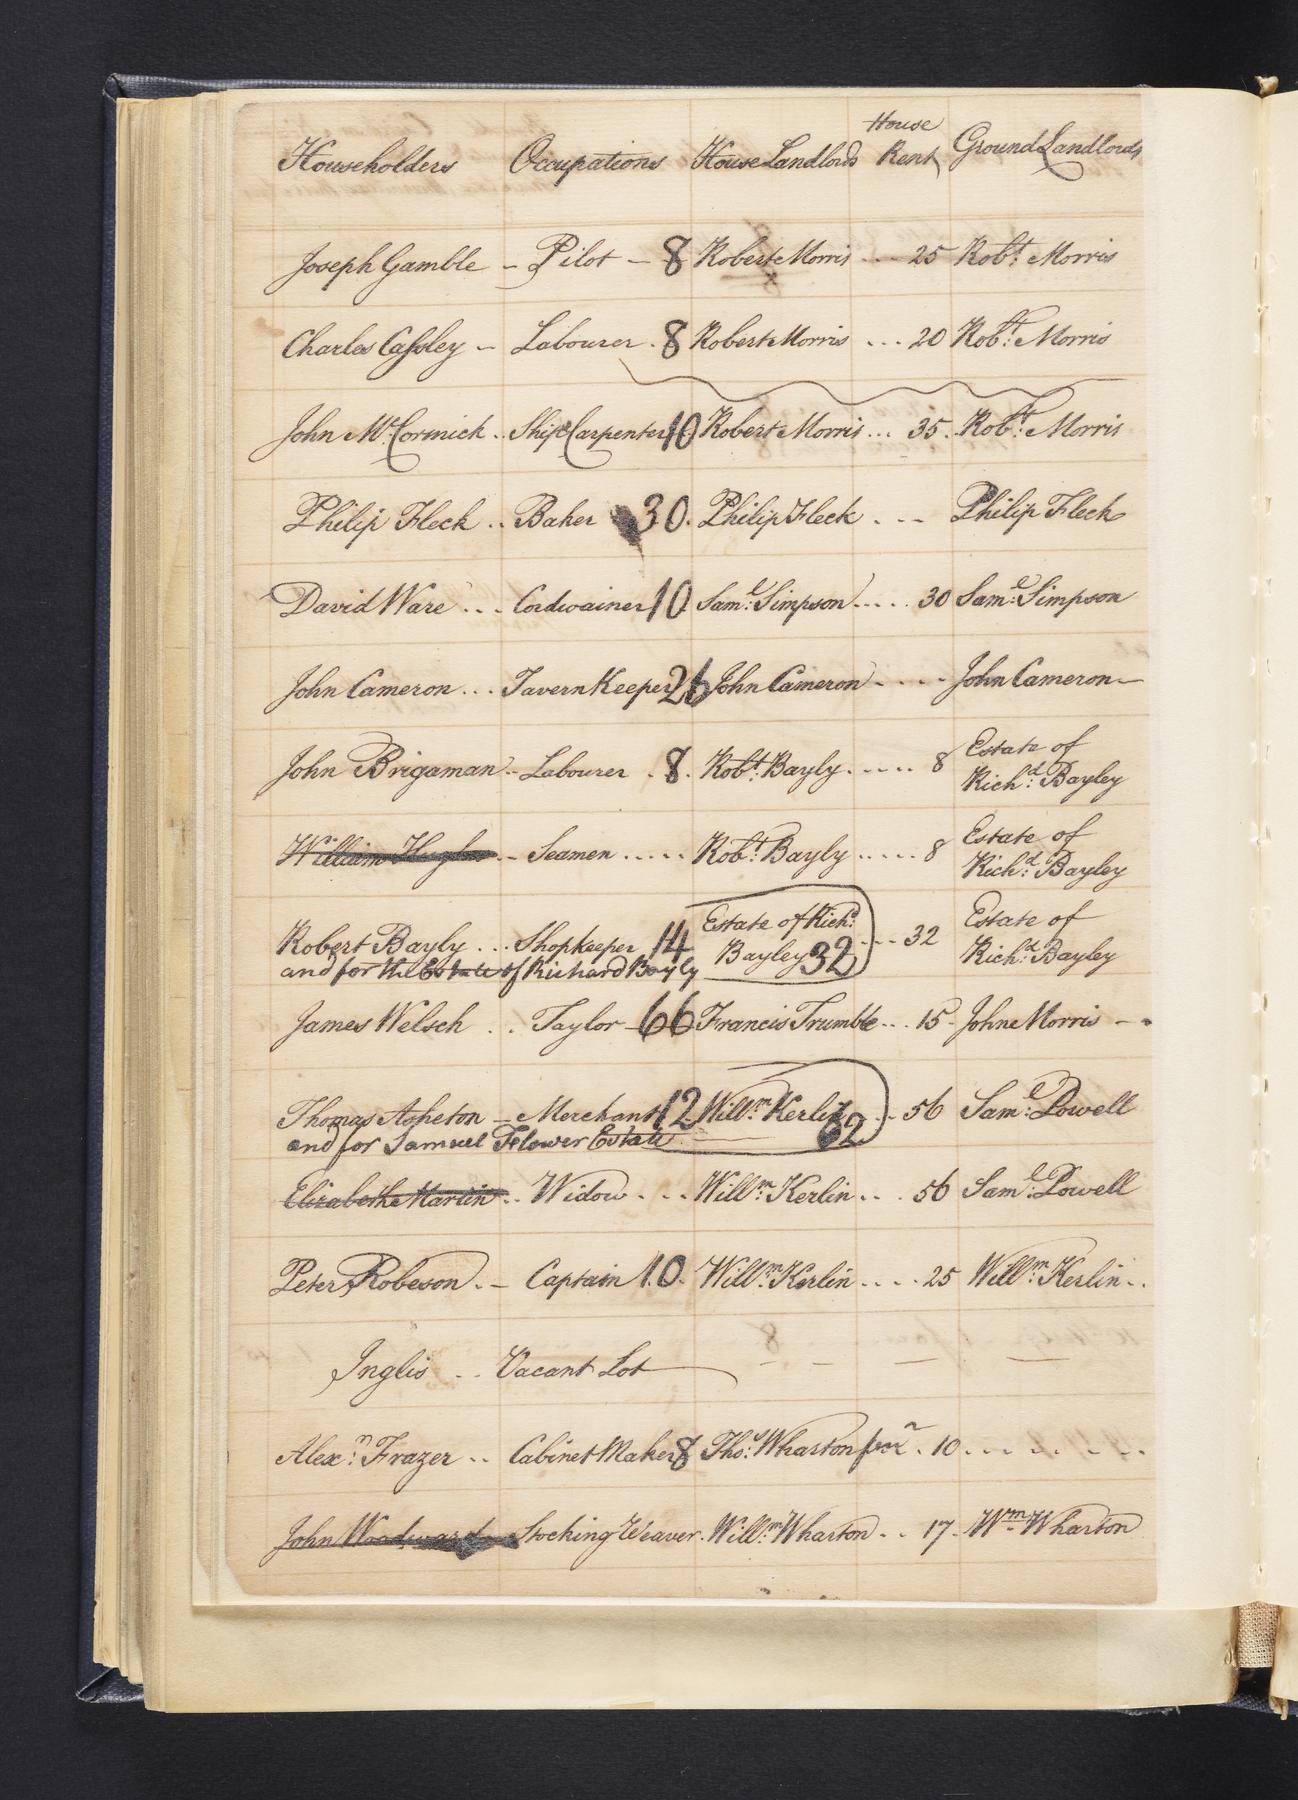 House
Householders Occupations House Landlords Rent Ground Landlords
Joseph Gamble - Pilot - 8 Robert Morris - - - 25 Robt. Morris
Charles Cassley - Labourer . 8 Robert Morris . . . 20 Robt. Morris
John McCormick . . Ship Carpenter 10 Robert Morris . . . 35 . Robt. Morris
Philip Fleck . . Baker 30 . Philip Fleck . - - Philip Fleck
David Ware . . . Cordwainer 10 Saml. Simpson . . . . . 30 Saml. Simpson
John Cameron . . . Tavern Keeper 26 John Cameron - - - - - John Cameron -
John Brigaman . . Labourer . 8 . Robt. Bayly . . . . . 8 Estate of
Richd. Bayley
William . . Seamen . . . . . Robt. Bayly . . . . . 8 Estate of
Richd. Bayley
Robert Bayly . . . Shopkeeper 14 Estate of Richd. . . . 32 Estate of
and for the Estate of Richard Bayly Bayley 32 Richd. Bayley
James Welsch . . Taylor - 66 Francis Trumble . . . 15 . John Morris - -
Thomas Asheton - Merchant 12 Willm. Kerlin 62 . . 56 Saml. Powell
and for Samuel Flower Estate
Elizabeth Martin . . Widow . . . Willm. Kerlin . . . 56 Saml. Powell
Peter Robeson . - Captain 10 . Willm. Kerlin . . . . 25 Willm. Kerlin . .
Inglis . . Vacant Lot
Alexr. Frazer . . Cabinet Maker 8 Thos. Wharton . 10 . . . . . . .
John Woodward Stocking Weaver . Willm. Wharton . . 17 . Wm. Wharton